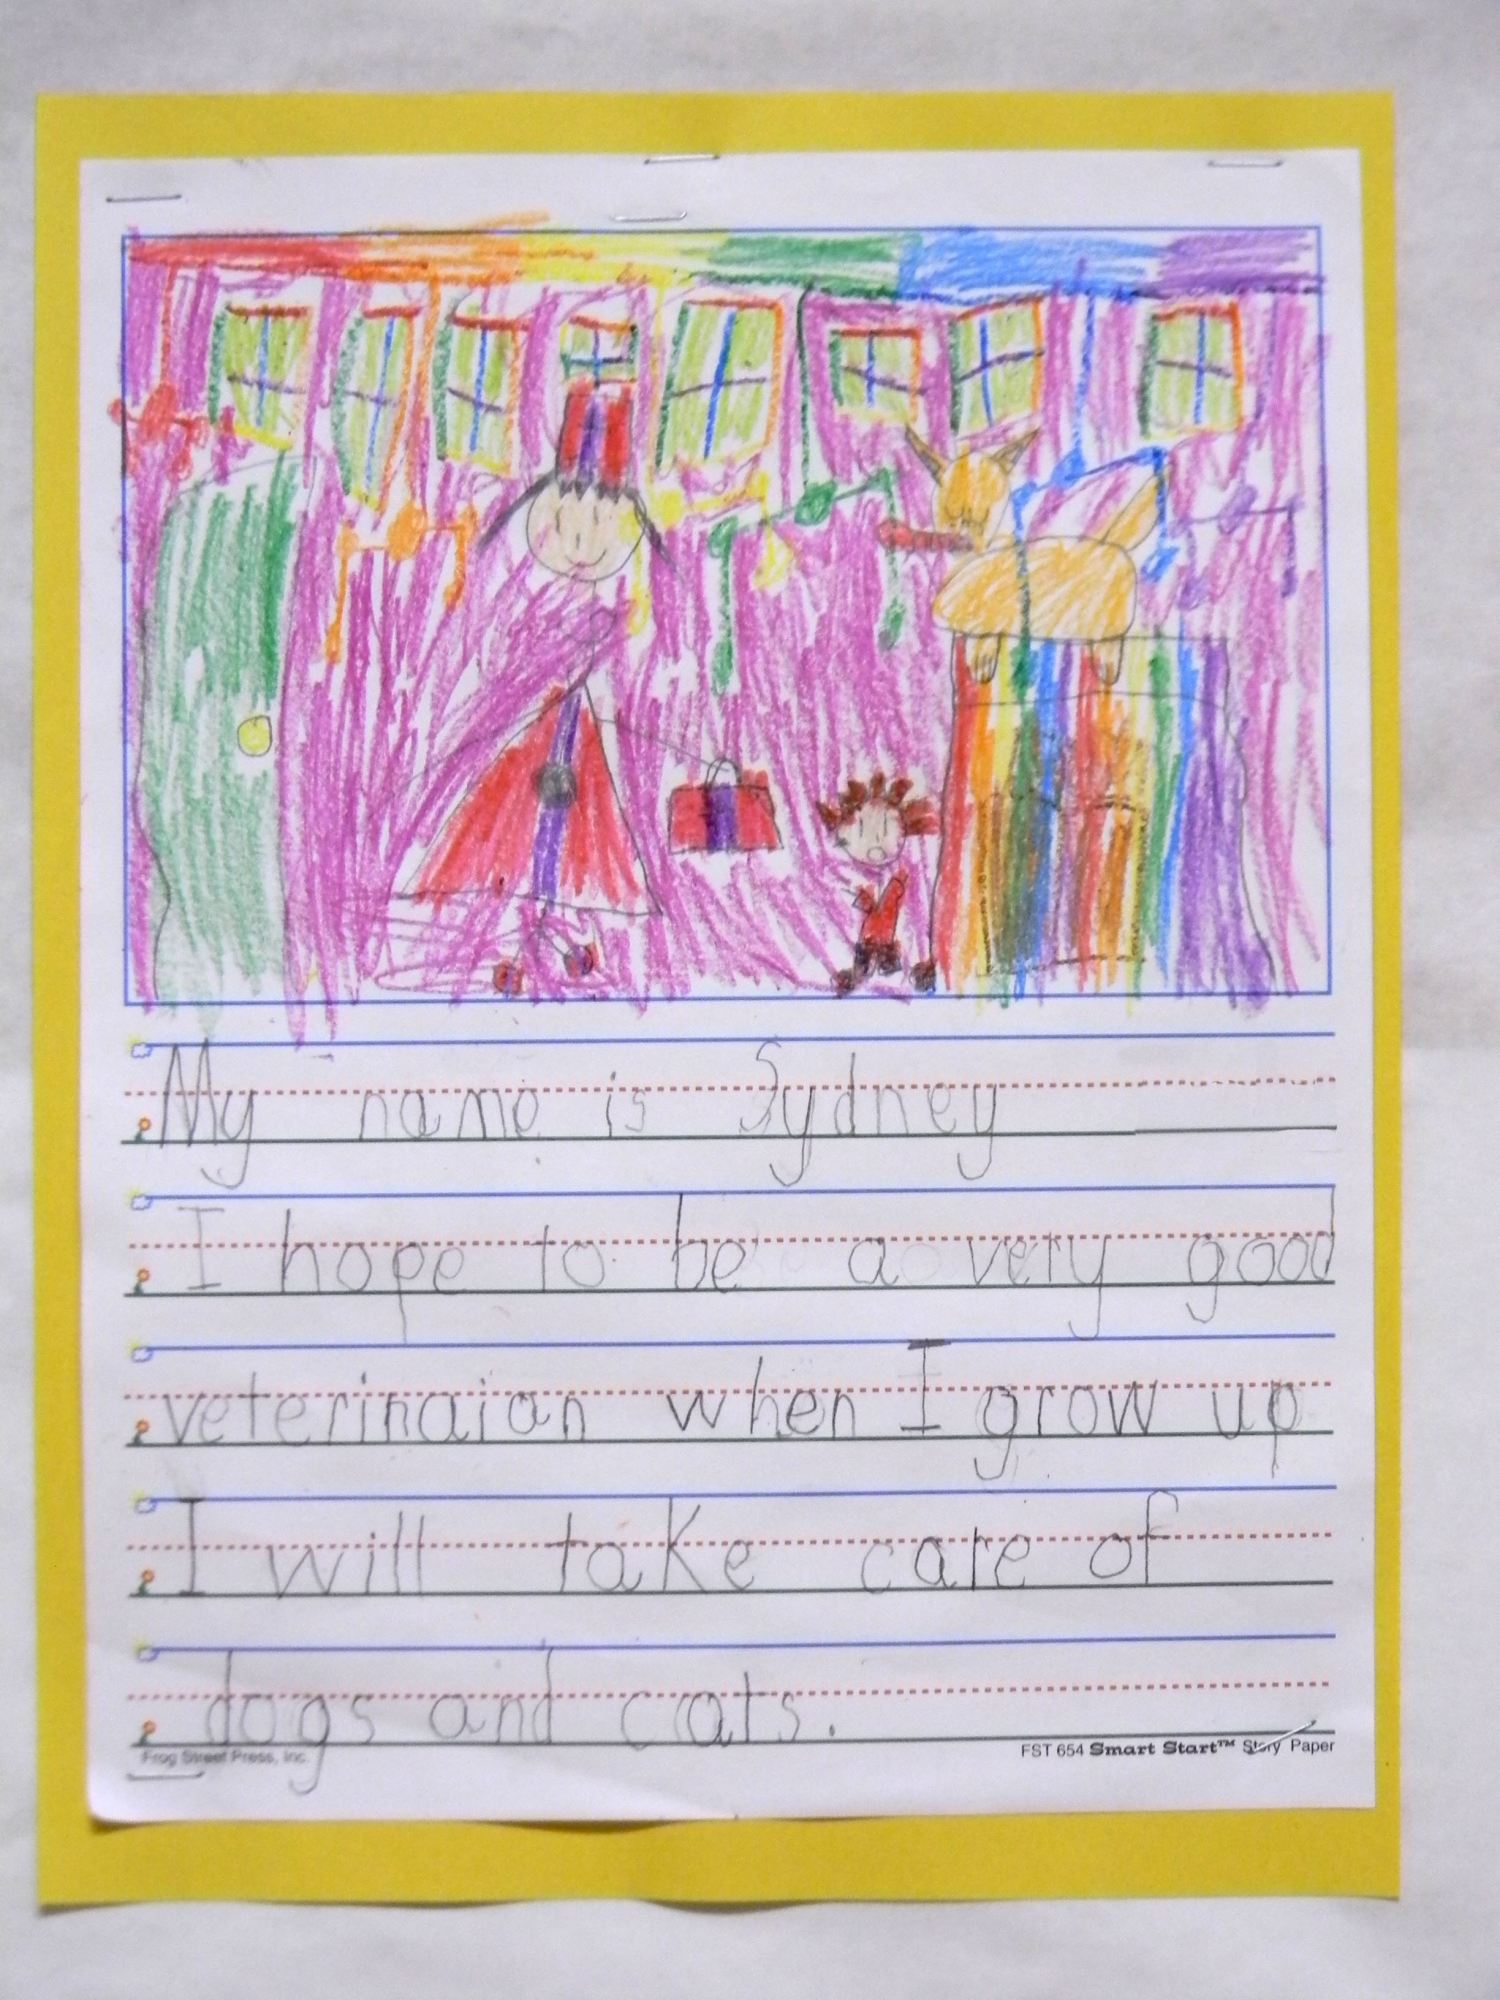 My name is Sydney
I hope to be a very good
veterinaian when I grow up
I will take care of
dogs and cats.
Frog Street Press, Inc.
FST 654 Smart Start™ Story Paper